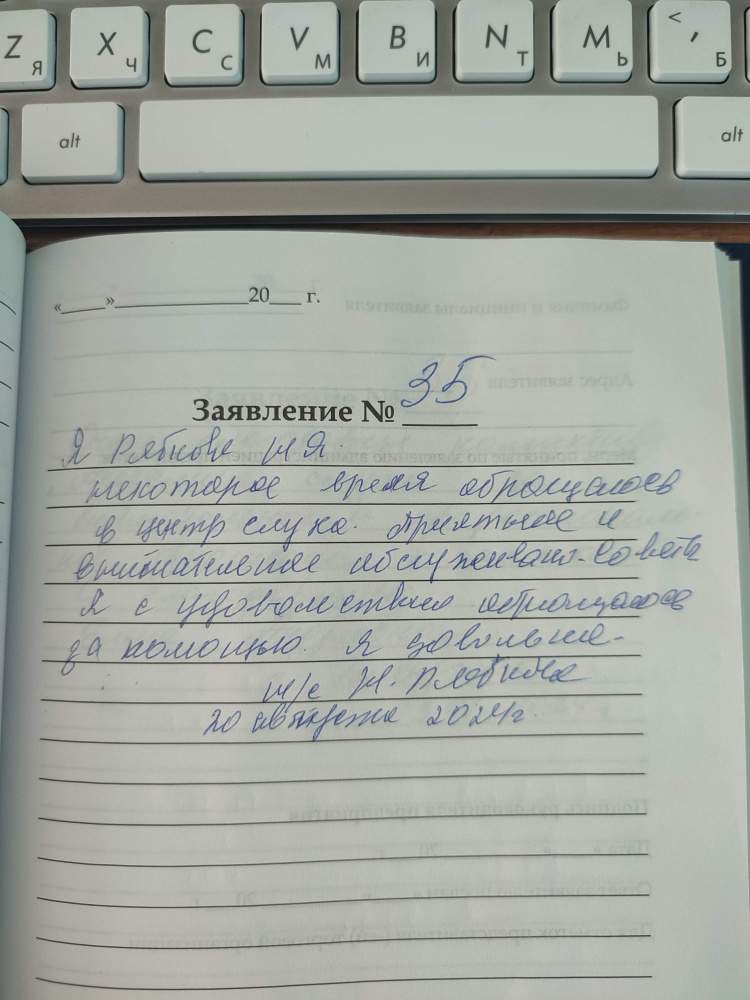 Z Я X Ч C С V М B И N Т M Ь < , Б
alt alt
«____»____________20___ г.
Заявление № 35
Я Рябкова Н Я.
некоторое время обращалась
в центр слуха. Приятное и
внимательное обслуживан. Советы
Я с удовольствием обращалась
за помощью. Я довольна.
Н. Рябкова
20 августа 2024г.